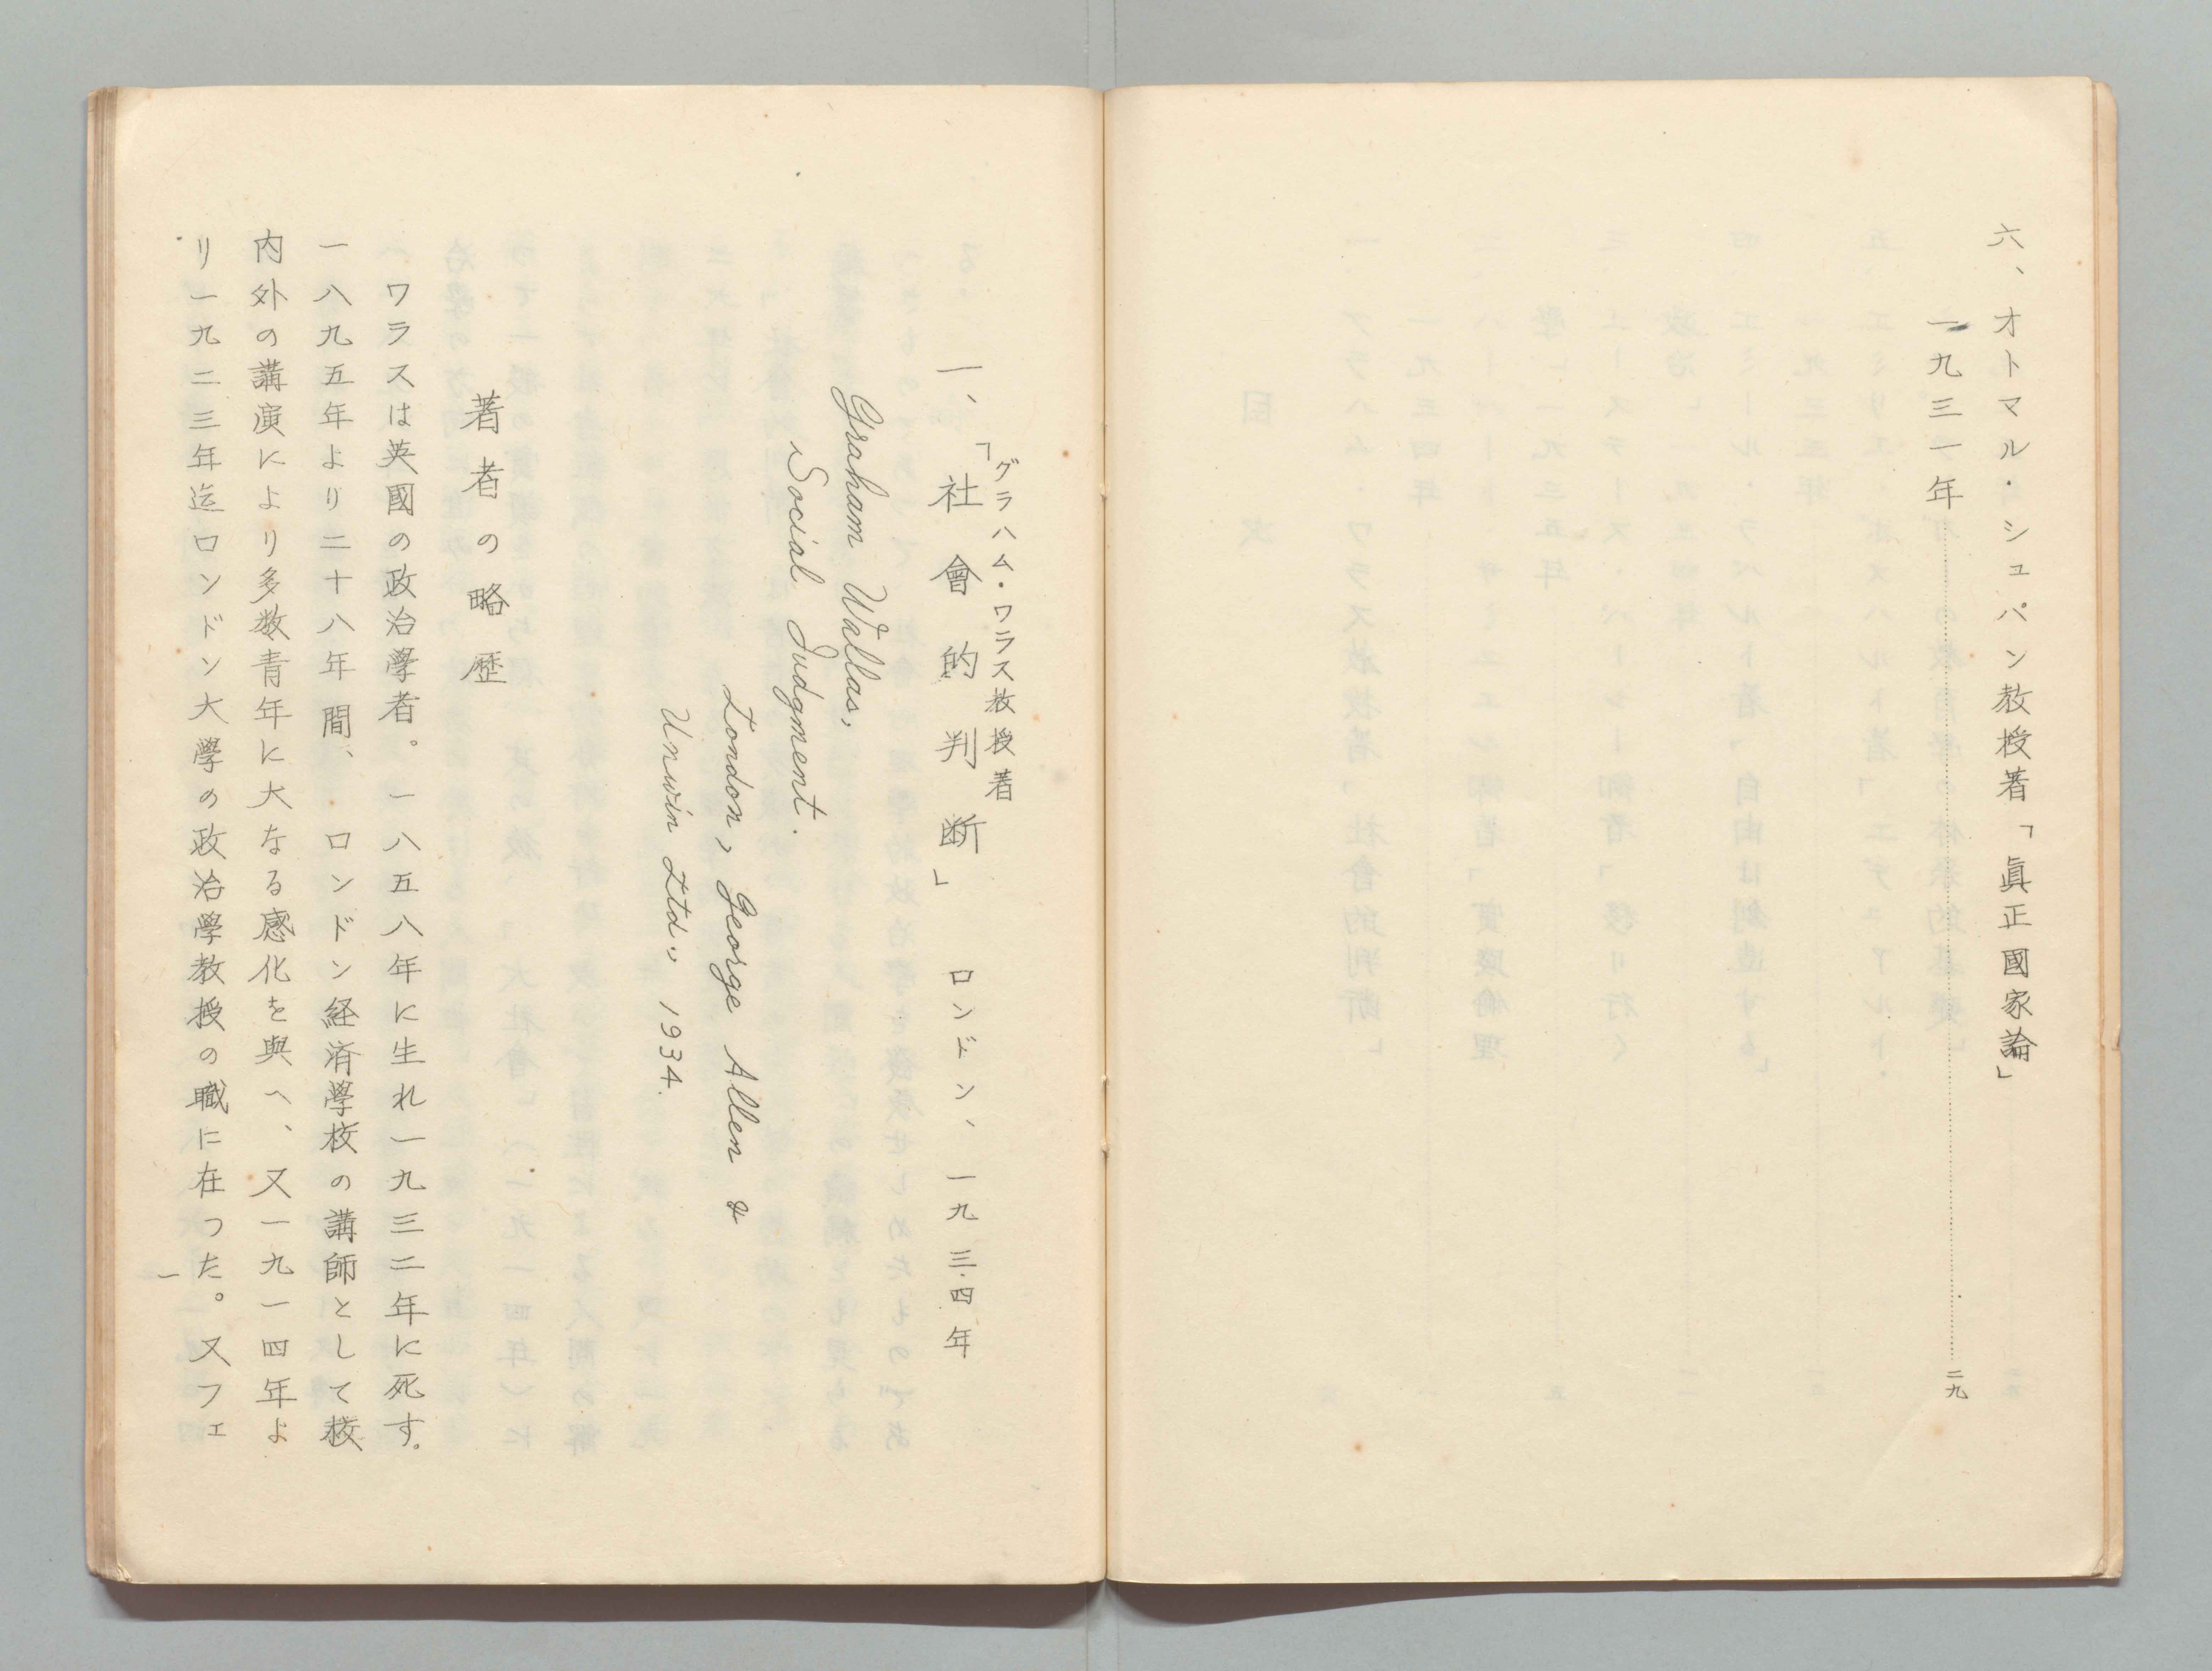 六、オトマル・シュパン教授著「眞正國家論」
一九三一年……二九
グラハム・ワラス教授著
一、「社會的判断」　ロンドン、一九三四年
Graham Wallas,
Social Judgment.
London, George Allen &
Unwin Ltd., 1934.
著者の略歴
ワラスは英國の政治學者。一八五八年に生れ一九三二年に死す。
一八九五年より二十八年間、ロンドン経済學校の講師として校
内外の講演により多数青年に大なる感化を與へ、又一九一四年よ
り一九二三年迄ロンドン大學の政治學教授の職に在つた。又フェ
一